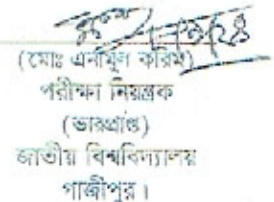 (মোঃ এনামুল করিম)
পরীক্ষা নিয়ন্ত্রক
(ভারপ্রাপ্ত)
জাতীয় বিশ্ববিদ্যালয়
গাজীপুর।